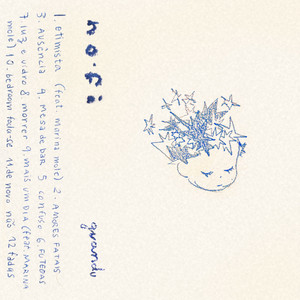 no.fi
guandu
1 otimista (feat marina mole) 2. AMORES FATAIS
3. Ausência 4. Mesa de bar 5 confuso 6. FUTEBAS
7. luz e vidro 8 morrer 9. mais um dia (feat. MARINA
mole) 10. bedroom fala-se 11 de novo não 12 fadas